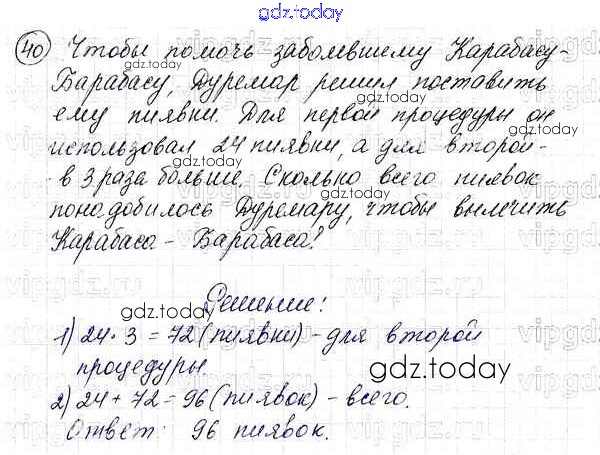 gdz.today
40 Чтобы помочь заболевшему Карабасу-
Барабасу, Дуремар решил поставить
gdz.today
ему пиявки. Для первой процедуры он
gdz.today
использовал 24 пиявки, а для второй -
gdz.today
- в 3 раза больше. Сколько всего пиявок
gdz.today
понадобилось Дуремару, чтобы вылечить
Карабаса - Барабаса?
Решение:
gdz.today
1) 24 · 3 = 72 (пиявки) - для второй
процедуры.
gdz.today
2) 24 + 72 = 96 (пиявок) - всего.
Ответ: 96 пиявок.